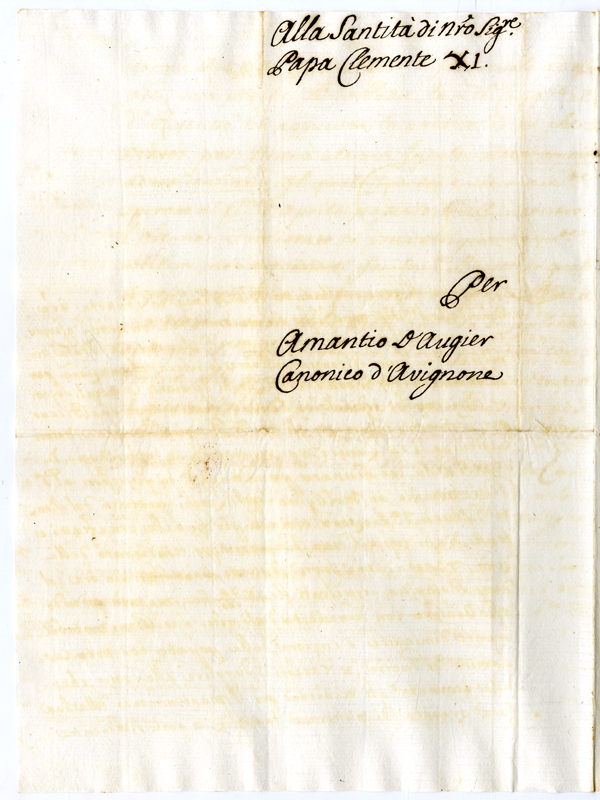 Alla Santità di Nrõ Sigre.
Papa Clemente XI.
Per
Amantio D'Augier
Canonico d'Avignone